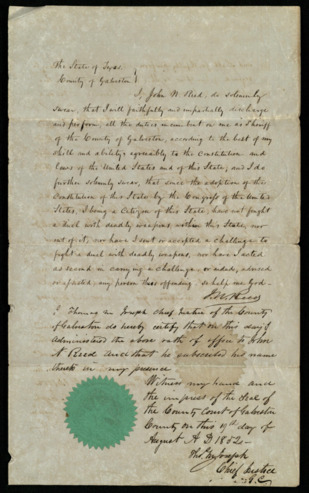 The State of Texas
County of Galveston }
I, John N. Reed, do solemnly
swear, that I will faithfully and impartially discharge
and perform all the duties incumbent on me as Sheriff
of the County of Galveston, according to the best of my
skill and ability, agreeably to the Constitution and
laws of the United States and of this State; and I do
further solemnly swear, that since the adoption of the
Constitution of this State by the Congress of the United
States, I being a Citizen of this State, have not fought
a duel with deadly weapons within this State, nor
out of it, nor have I sent or accepted a challenge to
fight a duel with deadly weapons, nor have I acted
as second in carrying a challenge, or aided, advised
or assisted, any person thus offending. So help me God.
Reed
I Thomas M Joseph Chief Justice of the County
of Galveston do hereby certify that on this day I
administered the above oath of office to John
N Reed and that he subscribed his name
thereto in my presence
Witness my hand and
the impress of the Seal of
the County Court of Galveston
County on this day of
August A D 1852
Thos M Joseph
Chief Justice
G.C.